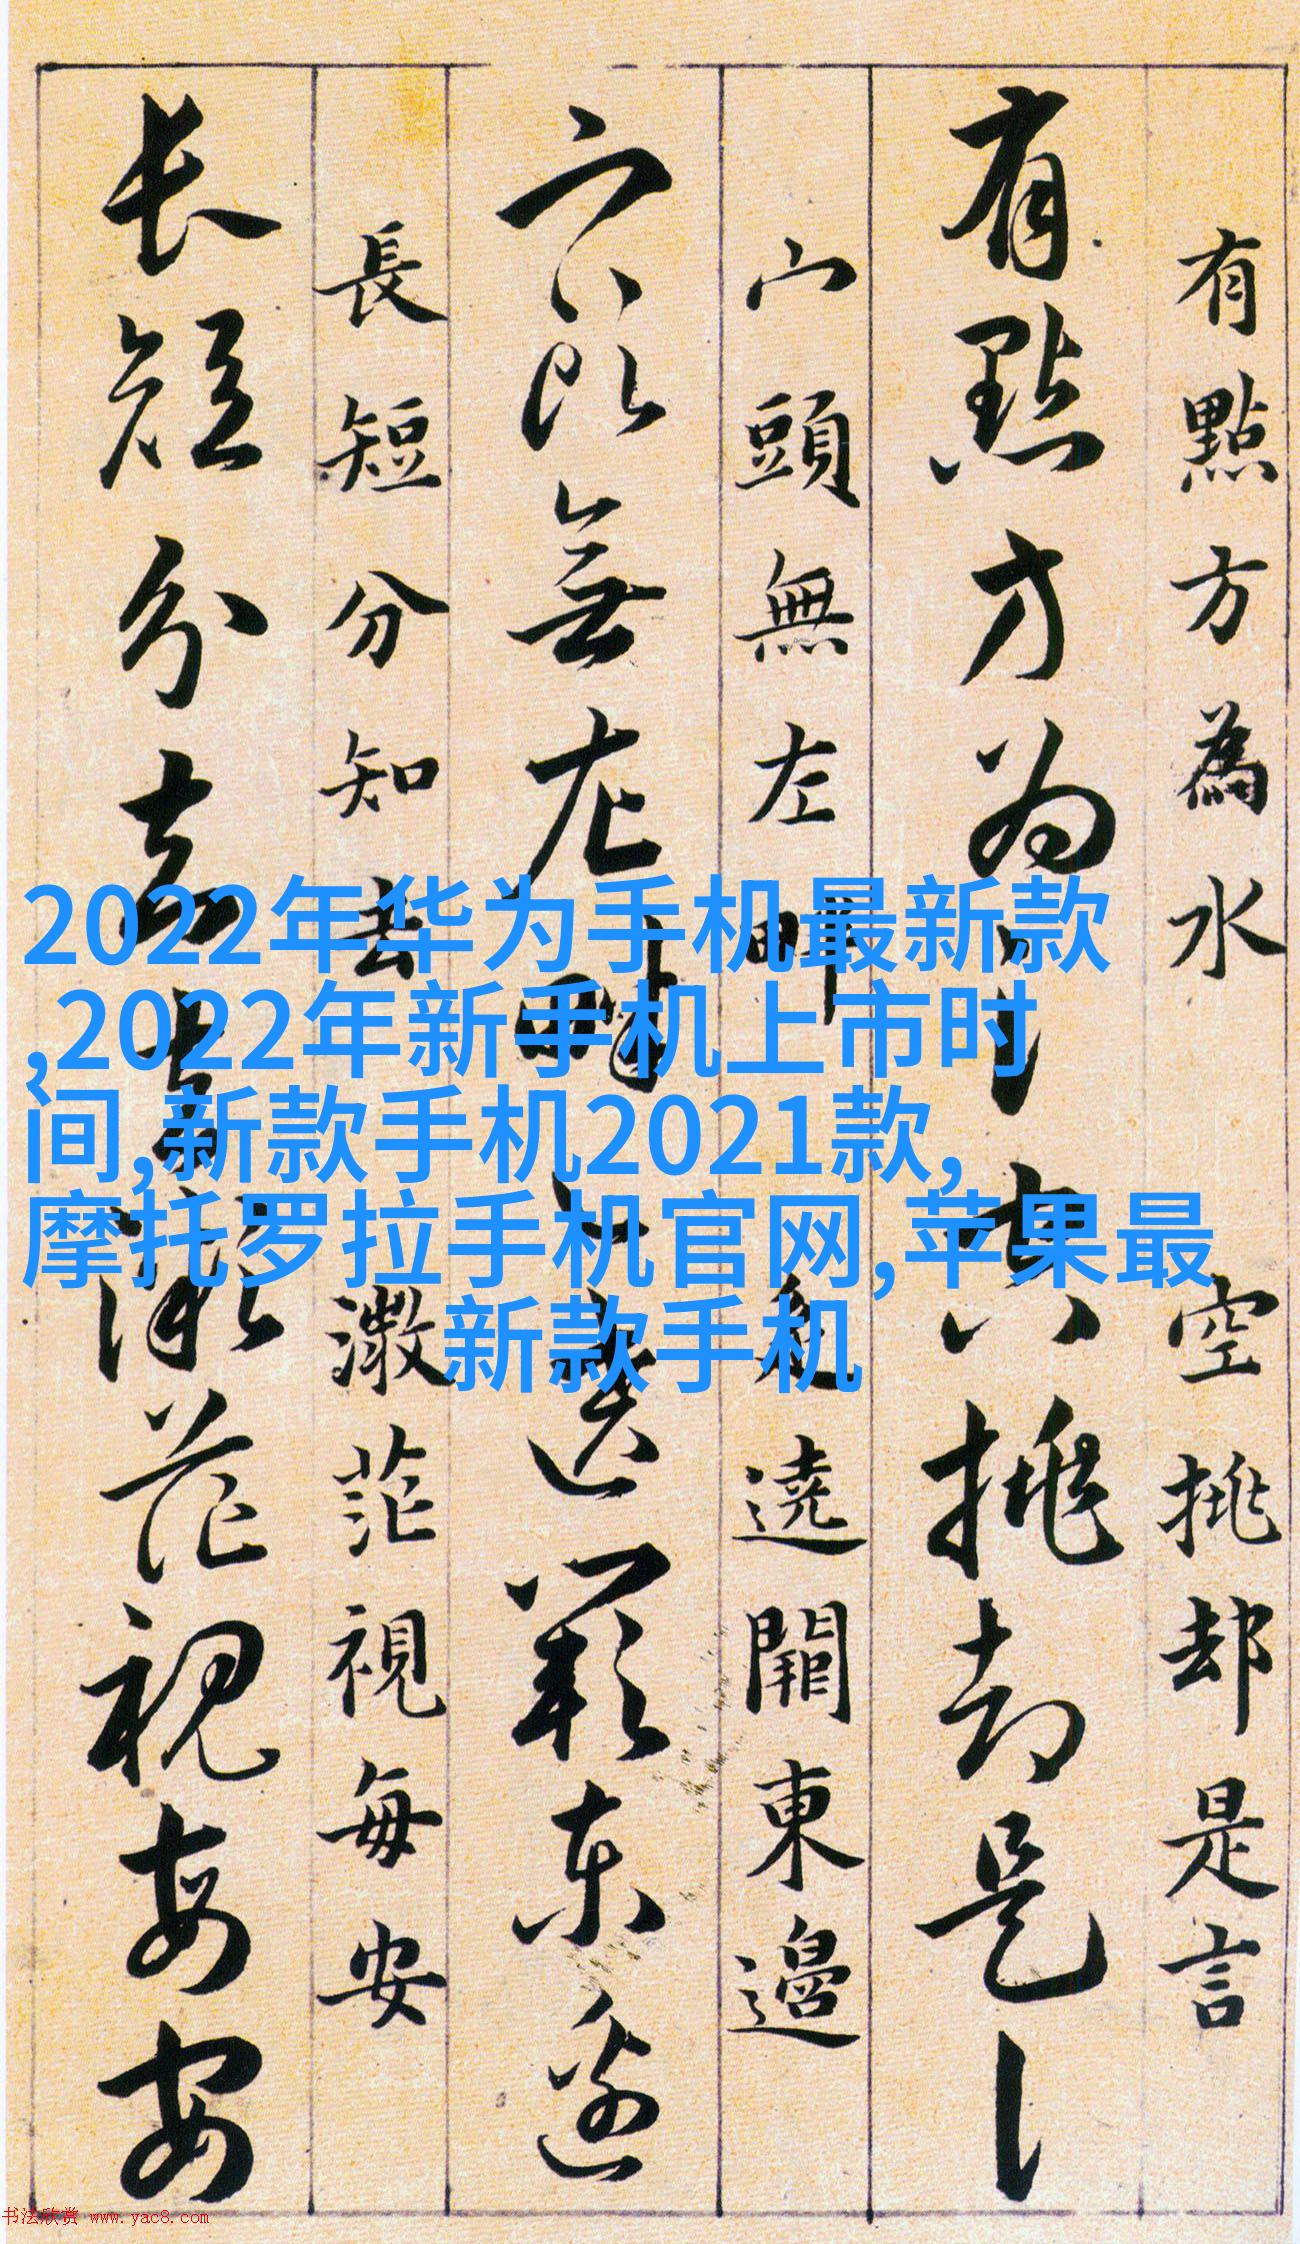 有點方為水
空挑却是言
有點方为氵
空挑却是讠
宀頭無左畔
走遶闕東邊
宀頭無左畔
辶遶闕東邊
長短分知去
潋茫視每安
长短分知去
潋茫視每安
2022年华为手机最新款
,2022年新手机上市时
间,新款手机2021款,
摩托罗拉手机官网,苹果最
新款手机
书法欣赏 www.yac8.com